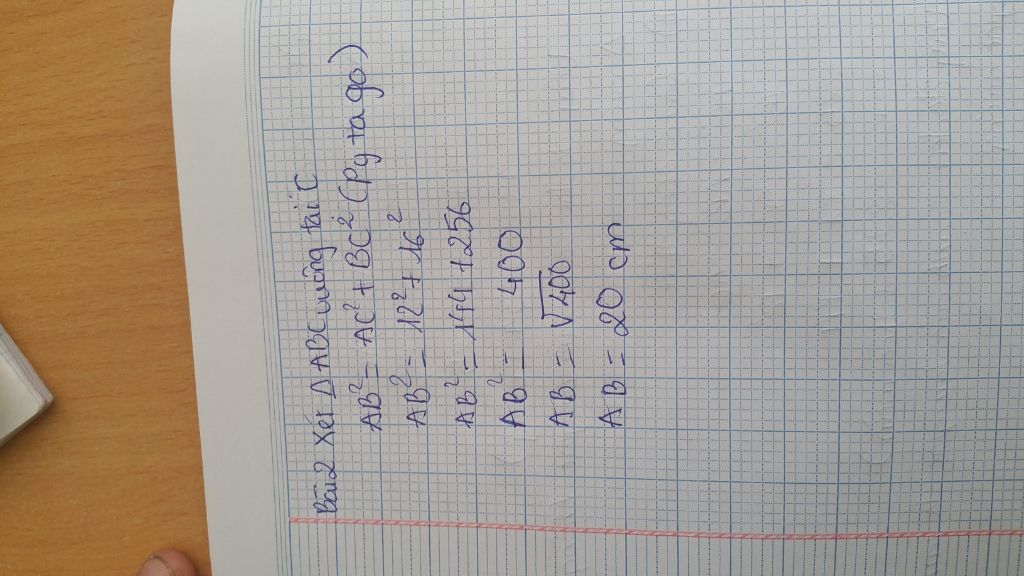 Bài 2 Xét Δ ABC vuông tại C
AB² = AC² + BC² (Py ta go)
AB² = 12² + 16²
AB² = 144 + 256
AB² = 400
AB = √400
AB = 20 cm